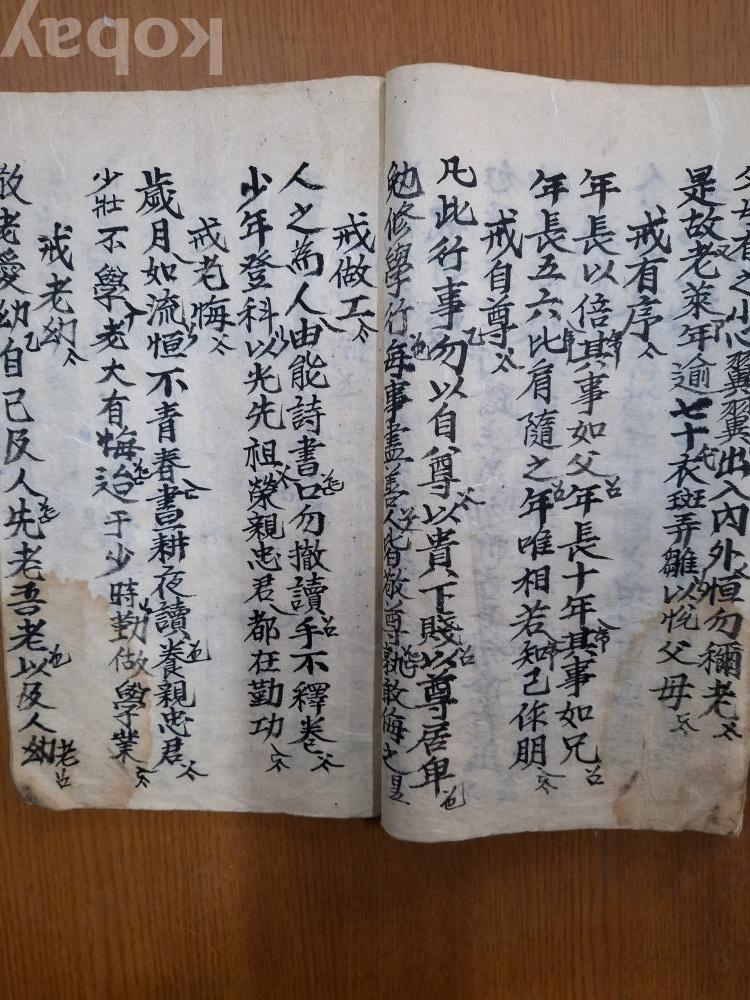 父母有之小心翼翼出入內外恒勿稱老
是故老萊年逾七十衣斑弄雛以悅父母
戒有序
年長以倍其事如父年長十年其事如兄
年長五六比肩隨之年唯相若知己作朋
戒自尊
凡此行事勿以自尊以貴下賤以尊居卑
勉修學行每事盡善人皆敬尊孰敢侮之
戒做工
人之為人由能詩書口勿撤讀手不釋卷
少年登科以光先祖榮親忠君都在勤功
戒老悔
歲月如流恒不青春晝耕夜讀養親忠君
少壯不學老大有悔迨于少時勤做學業
戒老幼
敬老愛幼自己及人先老吾老以及人
kobay